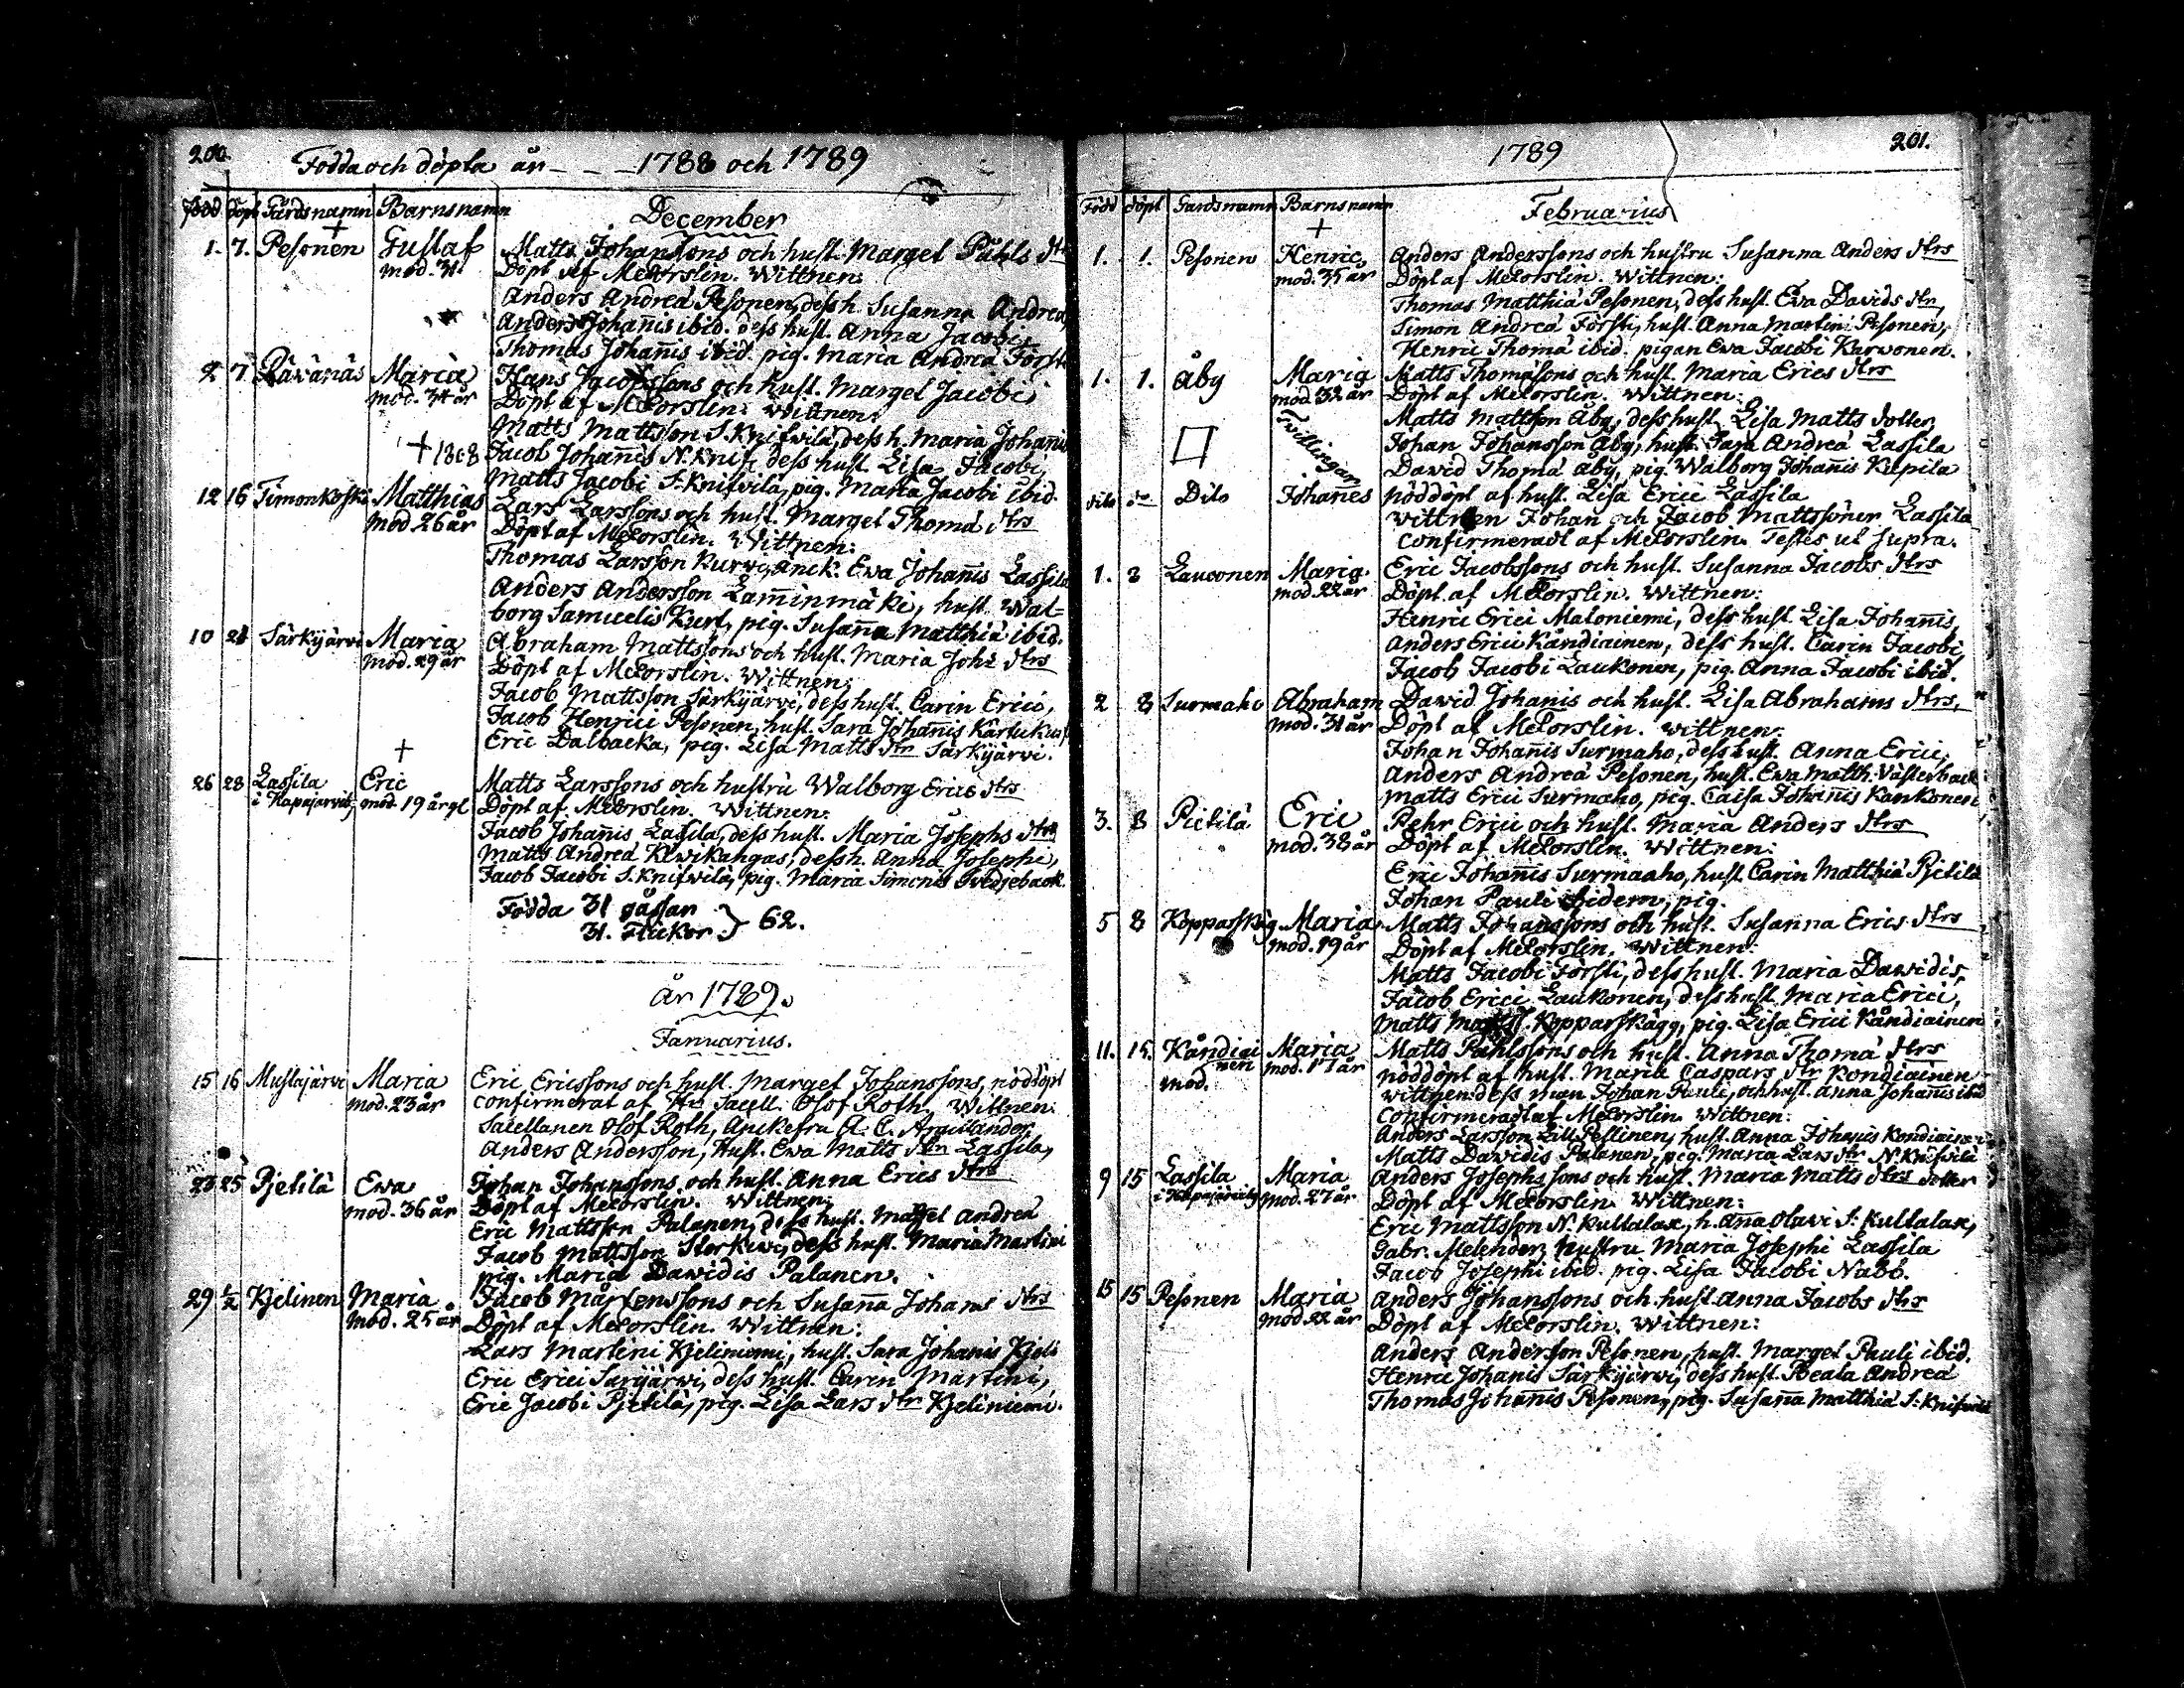 200.
Födda och döpta år - - - 1788 och 1789
Född döpt Gårdsnamn Barnsnamn
December
1. 7. Pesonen Gustaf Matts Johanssons och hust. Marget Påhls dtr
mod. 31. Döpt af MElorslin. Wittnen:
Anders Andreä Pesonen, dess h. Susanna Andreä,
Anders Johannis ibid. dess hust. Anna Jacobi,
Thomas Johannis ibid. pig. Maria Andreä Förste
2 7 Räwänäs Maria Hans Jacobssons och hust. Marget Jacobi,
mod. 34 år Döpt af MElorslin. Wittnen:
Matts Mattsson S. Knifwilä, dess h. Maria Johanis
+ 1808 Jacob Johannis N. Knif, dess hust. Lisa Jacobi,
Matts Jacobi S. Knifwilä, pig. Maria Jacobi ibid.
12 16 Timonkoski Matthias Lars Larssons och hust. Marget Thomä dtrs
mod 26 år Döpt af MElorslin. Wittnen:
Thomas Larsson Kurw, Enck. Ewa Johannis Lassila
Anders Andersson Lamminmäki, hust. Wal-
borg Samuelis Kurf, pig. Susanna Matthiä ibid.
10 21 Särkijärwi Maria Abraham Mattssons och hust. Maria Joh: dtrs
mod. 29 år Döpt af MElorslin. Wittnen:
Jacob Mattsson Särkijärwi, dess hust. Carin Erici,
Jacob Henrici Pesonen, hust. Sara Johannis
Eric Dalbacka, pig. Lisa Matts dtr Särkijärvi.
26 28 Lassila Eric Matts Larssons och hustru Walborg Erics dtrs
i mod. 19 år gl Döpt af MElorslin. Wittnen:
Jacob Johannis Lassila, dess hust. Maria Josephs dtr
Matts Andreä Kiwikangas, dess h. Anna Josephi,
Jacob Jacobi S. Knifwilä, pig. Maria Simonis Svedjeback.
Födda 31 gåssar
31. Flickor } 62.
år 1789.
Januarius.
15 16 Mustajärvi Maria Eric Ericssons och hust. Marget Johanssons, nöddöpt
mod. 23 år confirmerat af Hr Sacell. Olof Roth. Wittnen:
Sacellanen Olof Roth, Anckefru A. C.
Anders Andersson, Hust. Ewa Matts dtr Lassila,
23 25 Pjetilä Ewa Johan Johanssons och hust. Anna Erics dtrs
mod. 36 år Döpt af MElorslin. Wittnen:
Eric Mattsson Palanen, dess hust. Marget Andreä
Jacob Mattsson Storkiwi, dess hust. Maria Martini
pig. Maria Dawidis Palanen.
29 1/2 Kjelinen Maria Jacob Mårtenssons och Susanna Johans dtrs
mod. 25 år Döpt af MElorslin. Wittnen:
Lars Martini Kjeliniemi, hust. Sara Johanis Kjeli
Eric Erici Särijärwi, dess hust. Carin Martini,
Eric Jacobi Pjetilä, pig. Lisa Lars dtr Kjeliniemi.
201.
1789
Född döpt Gardsnamn Barnsnamn
Februarius
1. 1. Pesonen Henric, Anders Anderssons och hustru Susanna Anders dtrs
mod. 35 år Döpt af MElorslin. Wittnen:
Thomas Matthiä Pesonen, dess hust. Ewa Davids dtr,
Simon Andreä Försti, hust. Anna Martini Pesonen,
Henric Thomä ibid. pigan Ewa Jacobi Karwonen.
1. 1. Åby Maria Matts Thomassons och hust. Maria Erics dtrs
mod 32 år Döpt af MElorslin. Wittnen:
Tvillingar Matts Mattson Åby, dess hust. Lisa Matts dotter,
Johan Johansson Åby, hust. Sara Andreä Lassila
Dawid Thomä Åby, pig. Walborg Johannis Kapila
dito do Dito Johannes nöddöpt af hust. Lisa Erici Lassila
Wittnen Johan och Jacob Mattssöner Lassila
Confirmeradt af MElorslin. Testes ut supra.
1. 3 Lauconen Maria. Eric Jacobssons och hust. Susanna Jacobs dtrs
mod 22 år Döpt af MElorslin. Wittnen:
Henric Erici Maloniemi, dess hust. Lisa Johannis,
Anders Erici Kåndiainen, dess hust. Carin Jacobi,
Jacob Jacobi Laukonen, pig. Anna Jacobi ibid.
2 8 Surmaho Abraham Dawid Johanis och hust. Lisa Abrahams dtrs,
mod. 31 år Döpt af MElorslin. Wittnen:
Johan Johannis Surmaho, dess hust. Anna Erici,
Anders Andreä Pesonen, hust. Ewa Matth. Västerback
Matts Erici Surmaho, pig. Caisa Johannis Kankonen
3. 8 Pietilä Eric Pehr Erici och hust. Maria Anders dtrs
mod. 38 år Döpt af MElorslin. Wittnen:
Eric Johannis Surmaaho, hust. Carin Matthiä Pjetilä
Johan Pauli ibidem, pig.
5 8 Kopparskäg Maria Matts Johanssons och hust. Susanna Erics dtrs
mod. 19 år Döpt af MElorslin. Wittnen:
Matts Jacobi Försti, dess hust. Maria Dawidis,
Jacob Erici Laukonen, dess hust. Maria Erici,
Matts Kopparskägg, pig. Lisa Erici Kåndiainen
11. 15. Kåndiai Maria Matts Påhlssons och hust. Anna Thomä dtrs
nen mod. 17 år nöddöpt af hust. Maria Caspars dtr Kondiainen
mod. wittnen: dess man Johan Pauli, och hust. Anna Johanis ibid
Confirmeradt af MElorslin. Wittnen:
Anders Larsson Lill Pellinen, hust. Anna Johanis Kondiainen
Matts Dawidis Palanen, pig. Maria Lars dtr N. Knifwilä
9 15 Lassila Maria Anders Josephssons och hust. Maria Matts dtrs dotter
i mod. 27 år Döpt af MElorslin. Wittnen:
Eric Mattsson N. Kultalax, h. Anna Olawi S: Kultalax,
Gabr. Melender, hustru Maria Josephi Lassila
Jacob Josephi ibid. pig. Lisa Jacobi Nabb.
15 15 Pesonen Maria Anders Johanssons och hust. Anna Jacobs dtrs
mod 22 år Döpt af MElorslin. Wittnen:
Anders Andersson Pesonen, hust. Marget Pauli ibid.
Henric Johanis Särkijerwi, dess hust. Beata Andreä
Thomas Johannis Pesonen, pig. Susanna Matthiä S: Knifwilä